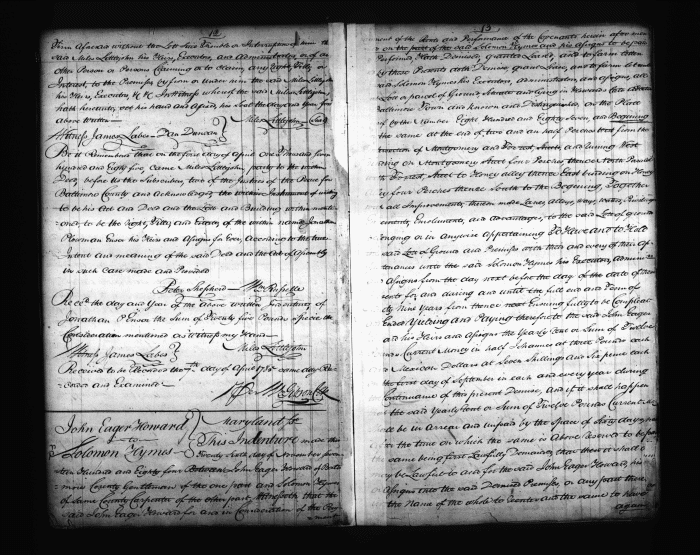 12
said Miles Littlejohn his Heirs, Executors, and Administrators or of any
other Person or Persons Claiming or to Claim, any Right Title or
Interest, to the Premises by from or under him the said Miles Littlejohn
his Heirs, Executors &c In Witness whereof the said Miles Littlejohn
hath hereunto set his hand and affixed his Seal the day and Year first
above written
Miles Littlejohn Seal
Witness James Labes Dan Duncan
Be it Remembered that on the day of April seventeen
hundred and Eighty five Came Miles Littlejohn party to the within
Deed, before us the Subscribers, two of the Justices of the Peace for
Baltimore County and Acknowledged the within Instrument of writing
to be his Act and Deed and the Lott and Building within mentioned
to be the Right, Title, and Estate of the within named Jonathan
Plowman Ensor his Heirs and Assigns for Ever, According to the true
Intent and meaning of the said Deed and the Act of Assembly
in such Case made and Provided
Peter Shepherd Wm Russell
Recd. the day and Year of the above written Indenture, of
Jonathan P Ensor the Sum of Twenty five Pounds Specie the
Consideration mentioned as witness my Hand
Witness James Labes Miles Littlejohn
Received to be Recorded the 7th day of April 1785 same day Re
corded and Examined
Wm Gibson Clk
John Eager Howard
to
Solomon Hymes
Maryland Ss
This Indenture made this
Twenty Sixth day of November
teen Hundred and Eighty four Between John Eager Howard of Balti
more County Gentleman of the one part and Solomon Hymes
of same County Carpenter of the other part, Witnesseth that the
said John Eager Howard for and in Consideration of the
13
ment of the Rents and Performance of the Covenants herein after men
on the part of the said Solomon Hymes and his Assigns to be paid
Performed Hath Demised, granted Leased, and to farm Letten
by these Presents doth Demise, grant Lease, and to farm let unto
said Solomon Hymes his Executors, administrators, and Assigns, all
Lott or parcel of Ground Situate and Lying in Howards late addition
Baltimore Town and known and Distinguished, on the Platt
of by the Number Eight Hundred and Eighty Seven, and Beginning
the same at the end of two and an half Perches from the
section of Montgomery and Forrest Streets and running West
ing on Montgomery Street four Perches thence North Parallel
to Forrest Street to Honey alley thence East bounding on Honey
ley four Perches thence South to the Beginning, Together
all Improvements, thereon made Lanes, alleys, Ways, Waters, Privileges
ements, Emoluments, and advantages, to the said Lott of ground
longing or in Anywise Appertaining To Have and to Hold
said Lott of Ground and Premises with their and every of their Ap
tenances unto the said Solomon Hymes his Executors, adminis
Assigns from the day next before the day of the date of these
sents for and during and until the full end and Term of
ty Nine Years from thence next Ensuing fully to be Compleat
Ended Yielding and Paying therefor to the said John Eager
his Heirs and Assigns the Yearly Rent or Sum of Twelve
Current Money in half Johannes at three Pounds each
Mexican Dollars at Seven Shillings and Six pence each
the first day of September in each and every Year during
Continuance of this present Demise, and if it shall happen
the said Yearly Rent or Sum of Twelve Pounds Current
be in Arrear and unpaid by the Space of Sixty days
the time on which the same is above Reserved to be paid
same being first Lawfully Demanded, that then it shall
be Lawful to and for the said John Eager Howard, his
Assigns into the said Demised Premises or any part there
the Name of the whole to Reenter and the same to have
again